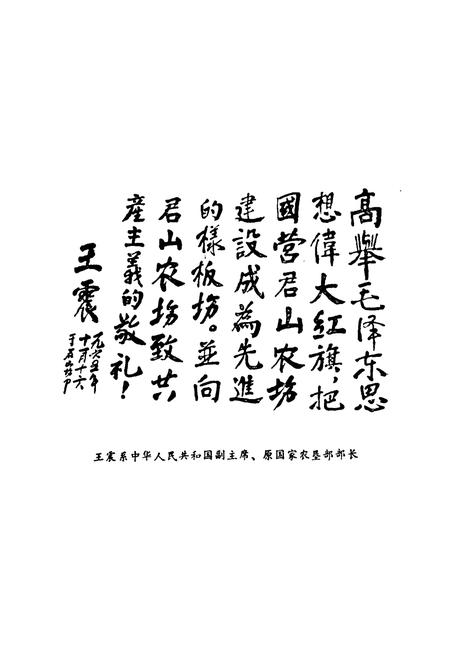 高舉毛泽东思
想偉大红旗，把
國营君山农场
建設成為先進
的樣板场。並向
君山农场致共
產主義的敬礼！
王震
一九六五年
十一月十六
王震系中华人民共和国副主席、原国家农垦部部长